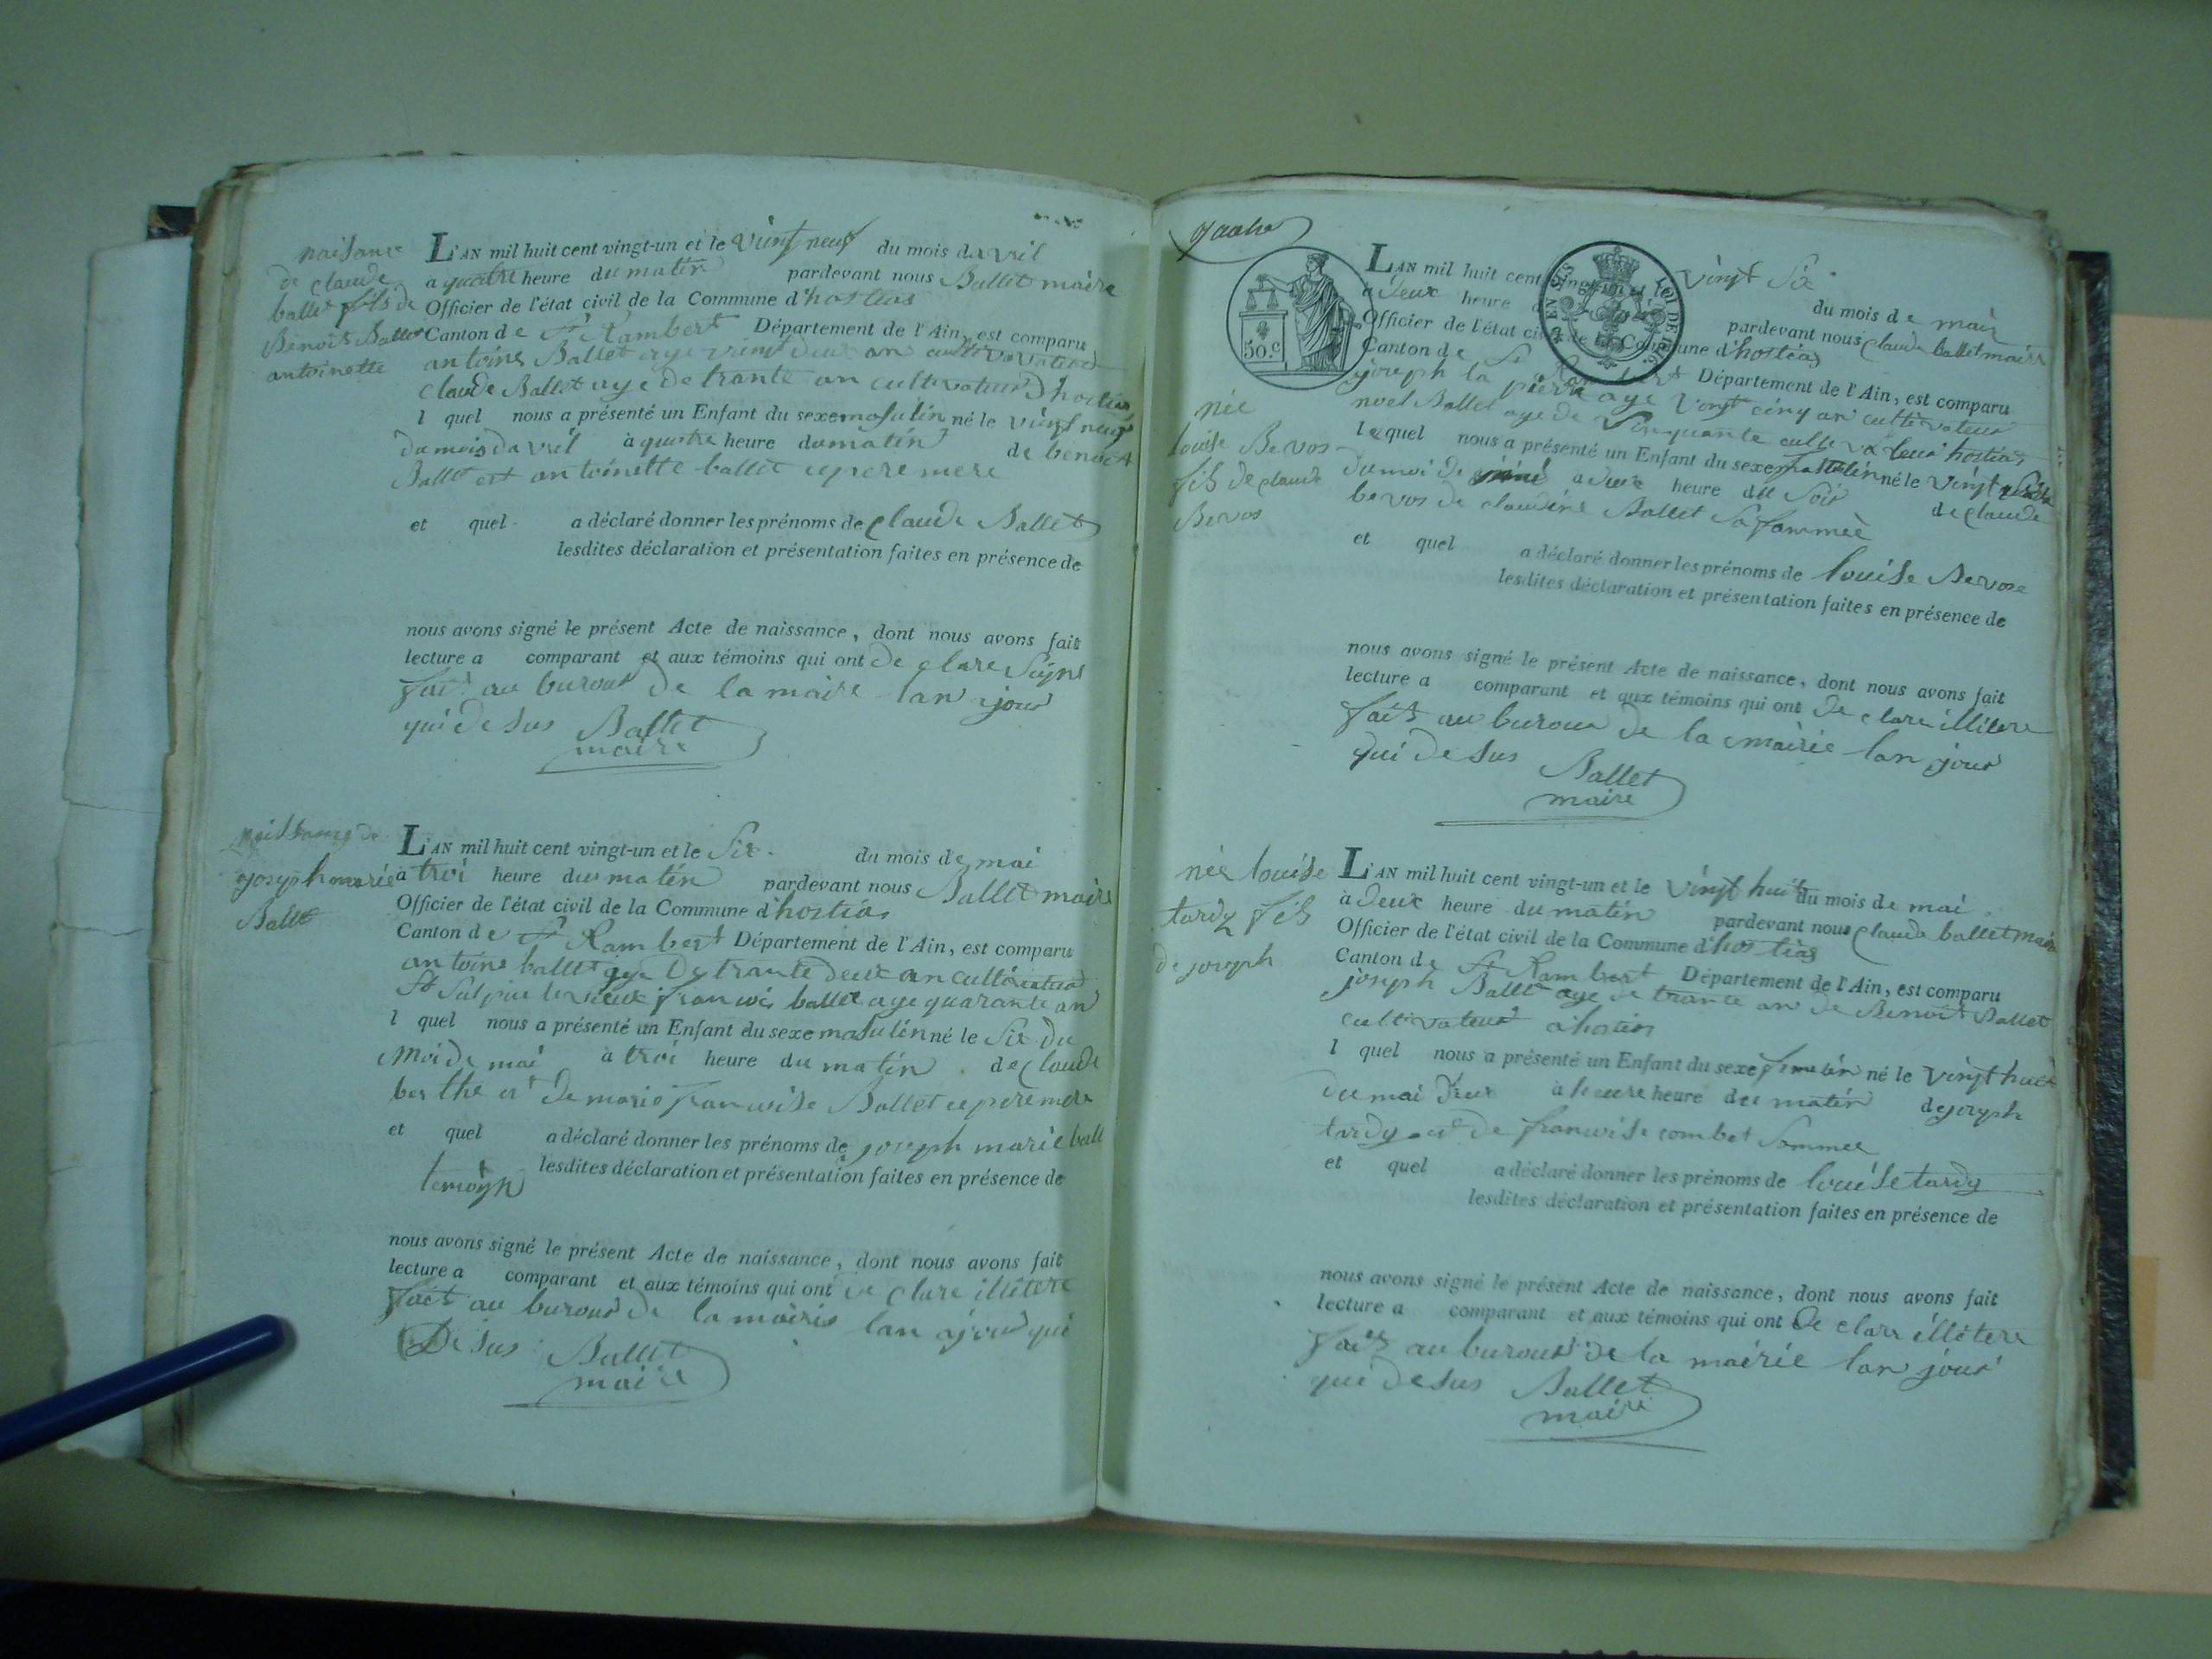 naisance
de claude
ballet fils de
Benoit Ballet
antoinette
L'AN mil huit cent vingt-un et le vingt neuf du mois davril
a quatre heure du matin pardevant nous Ballet maire
Officier de l'état civil de la Commune d'hostias
Canton de St Rambert Département de l'Ain, est comparu
antoine Ballet age vingt deux an cultivateur
claude Ballet age de trante an cultivateur dhostias
l quel nous a présenté un Enfant du sexe masulin né le vingt neuf
du mois davril à quatre heure du matin de benoit
Ballet est antoinette ballet ce pere mere
et quel a déclaré donner les prénoms de claude Ballet
lesdites déclaration et présentation faites en présence de
nous avons signé le présent Acte de naissance, dont nous avons fait
lecture a comparant et aux témoins qui ont de clare signe
fait au buroud de la maire lan jour
qui de sus Ballet
maire
naissance de
joseph marie
Ballet
L'AN mil huit cent vingt-un et le Six du mois de mai
à troi heure du matin pardevant nous Ballet maire
Officier de l'état civil de la Commune d'hostias
Canton de St Rambert Département de l'Ain, est comparu
antoine ballet age de trante deux an cultivateur
St Sulpice le vieux francois ballet age quarante an
l quel nous a présenté un Enfant du sexe masulin né le Six du
moi de mai à troi heure du matin de claude
berthe et de marie francoise Ballet ce pere mere
et quel a déclaré donner les prénoms de joseph marie ball
lesdites déclaration et présentation faites en présence de
temoign
nous avons signé le présent Acte de naissance, dont nous avons fait
lecture a comparant et aux témoins qui ont de clare illitere
fait au buroud de la mairie lan jour qui
De sus Ballet
maire
50.c
EN SUS
LOI DE 1816.
née
louise Bevos
fils de claude
Bevos
L'AN mil huit cent vingt-un et le vingt Six du mois de mai
à deux heure pardevant nous claude ballet maire
Officier de l'état civil de la Commune d'hostias
Canton de St Rambert Département de l'Ain, est comparu
joseph la pierre age vingt cinq an cultivateur
noel Ballet age de cinquante cultivateur hostias
lequel nous a présenté un Enfant du sexe né le vingt
du moi de a deux heure du Soir de claude
bevos de claudine Ballet Sa fammee
et quel a déclaré donner les prénoms de louise Bevose
lesdites déclaration et présentation faites en présence de
nous avons signé le présent Acte de naissance, dont nous avons fait
lecture a comparant et aux témoins qui ont de clare illitere
fait au buroud de la mairie lan jour
qui de sus Ballet
maire
née louise
tardy fils
de joseph
L'AN mil huit cent vingt-un et le vingt huit du mois de mai
à deux heure du matin pardevant nous claude ballet maire
Officier de l'état civil de la Commune d'hostias
Canton de St Rambert Département de l'Ain, est comparu
joseph Ballet age de trante an de Benoit Ballet
cultivateur dhostias
l quel nous a présenté un Enfant du sexe femelin né le vingt huit
du mai deux à heure heure du matin de joseph
tardy et de francoise combet Sammee
et quel a déclaré donner les prénoms de louise tardy
lesdites déclaration et présentation faites en présence de
nous avons signé le présent Acte de naissance, dont nous avons fait
lecture a comparant et aux témoins qui ont de clare illitere
fait au buroud de la mairie lan jour
qui de sus Ballet
maire